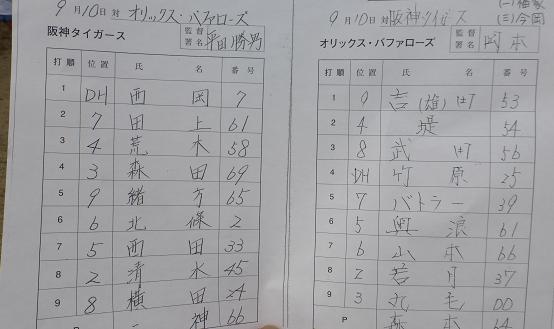 9月10日対 オリックス・バファローズ
阪神タイガース 監督署名 平田勝男
打順 位置 氏名 番号
1 DH 西岡 7
2 7 田上 61
3 4 荒木 58
4 3 森田 69
5 9 緒方 65
6 6 北條 2
7 5 西田 33
8 2 清水 45
9 8 横田 24
神 66
(三)今岡
9月10日対 阪神タイガース
オリックス・バファローズ 監督署名 岡本
打順 位置 氏名 番号
1 9 吉(雄)ほか 53
2 4 堤 54
3 8 武 56
4 DH 竹原 25
5 7 バトラー 39
6 5 奥浪 61
7 6 山本 66
8 2 若月 37
9 3 丸毛 00
P 森本 64